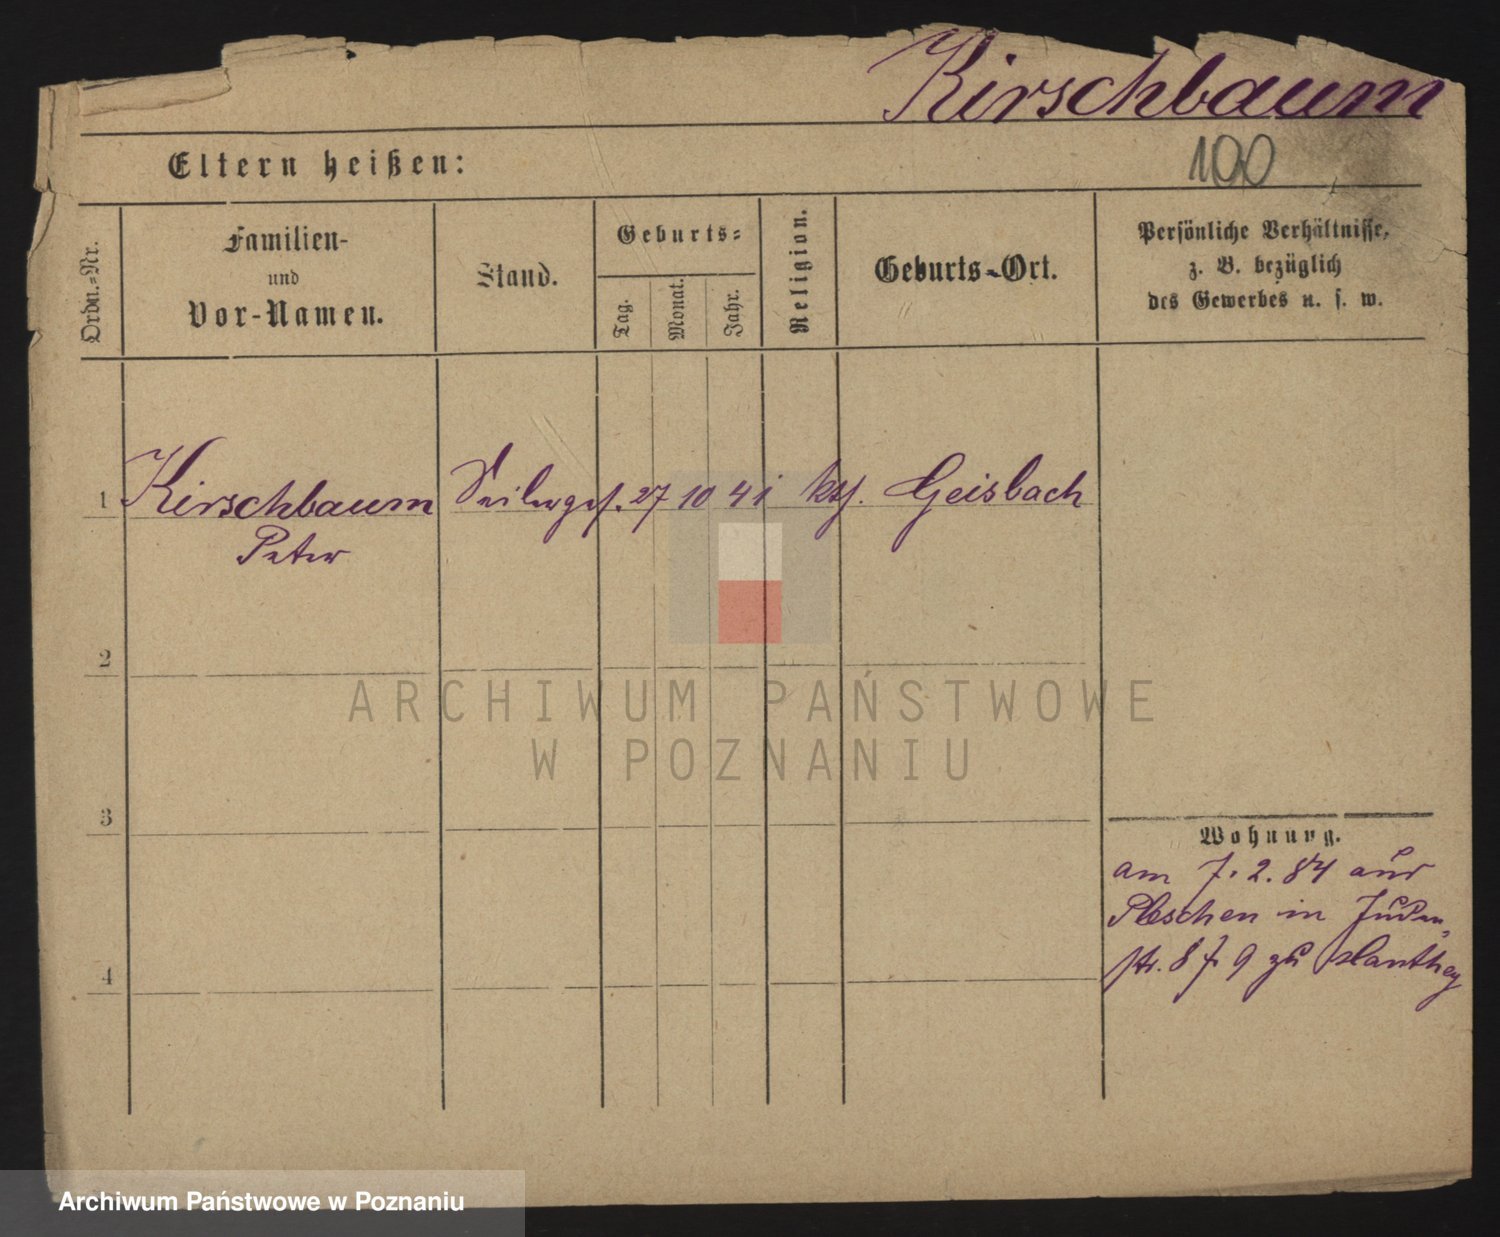 Kirschbaum
Eltern heißen:
100
Ordn.=Nr.
Familien-
und
Vor-Namen.
Stand.
Geburts=
Tag.
Monat.
Jahr.
Religion.
Geburts=Ort.
Persönliche Verhältnisse,
z. B. bezüglich
des Gewerbes u. s. w.
1 Kirschbaum Seilerges. 27 10 41 kth. Geisbach
Peter
2
3
4
Wohnung.
am 7. 2. 84 aus
Pleschen in Juden-
str. 8 9 zu
ARCHIWUM PAŃSTWOWE
W POZNANIU
Archiwum Państwowe w Poznaniu